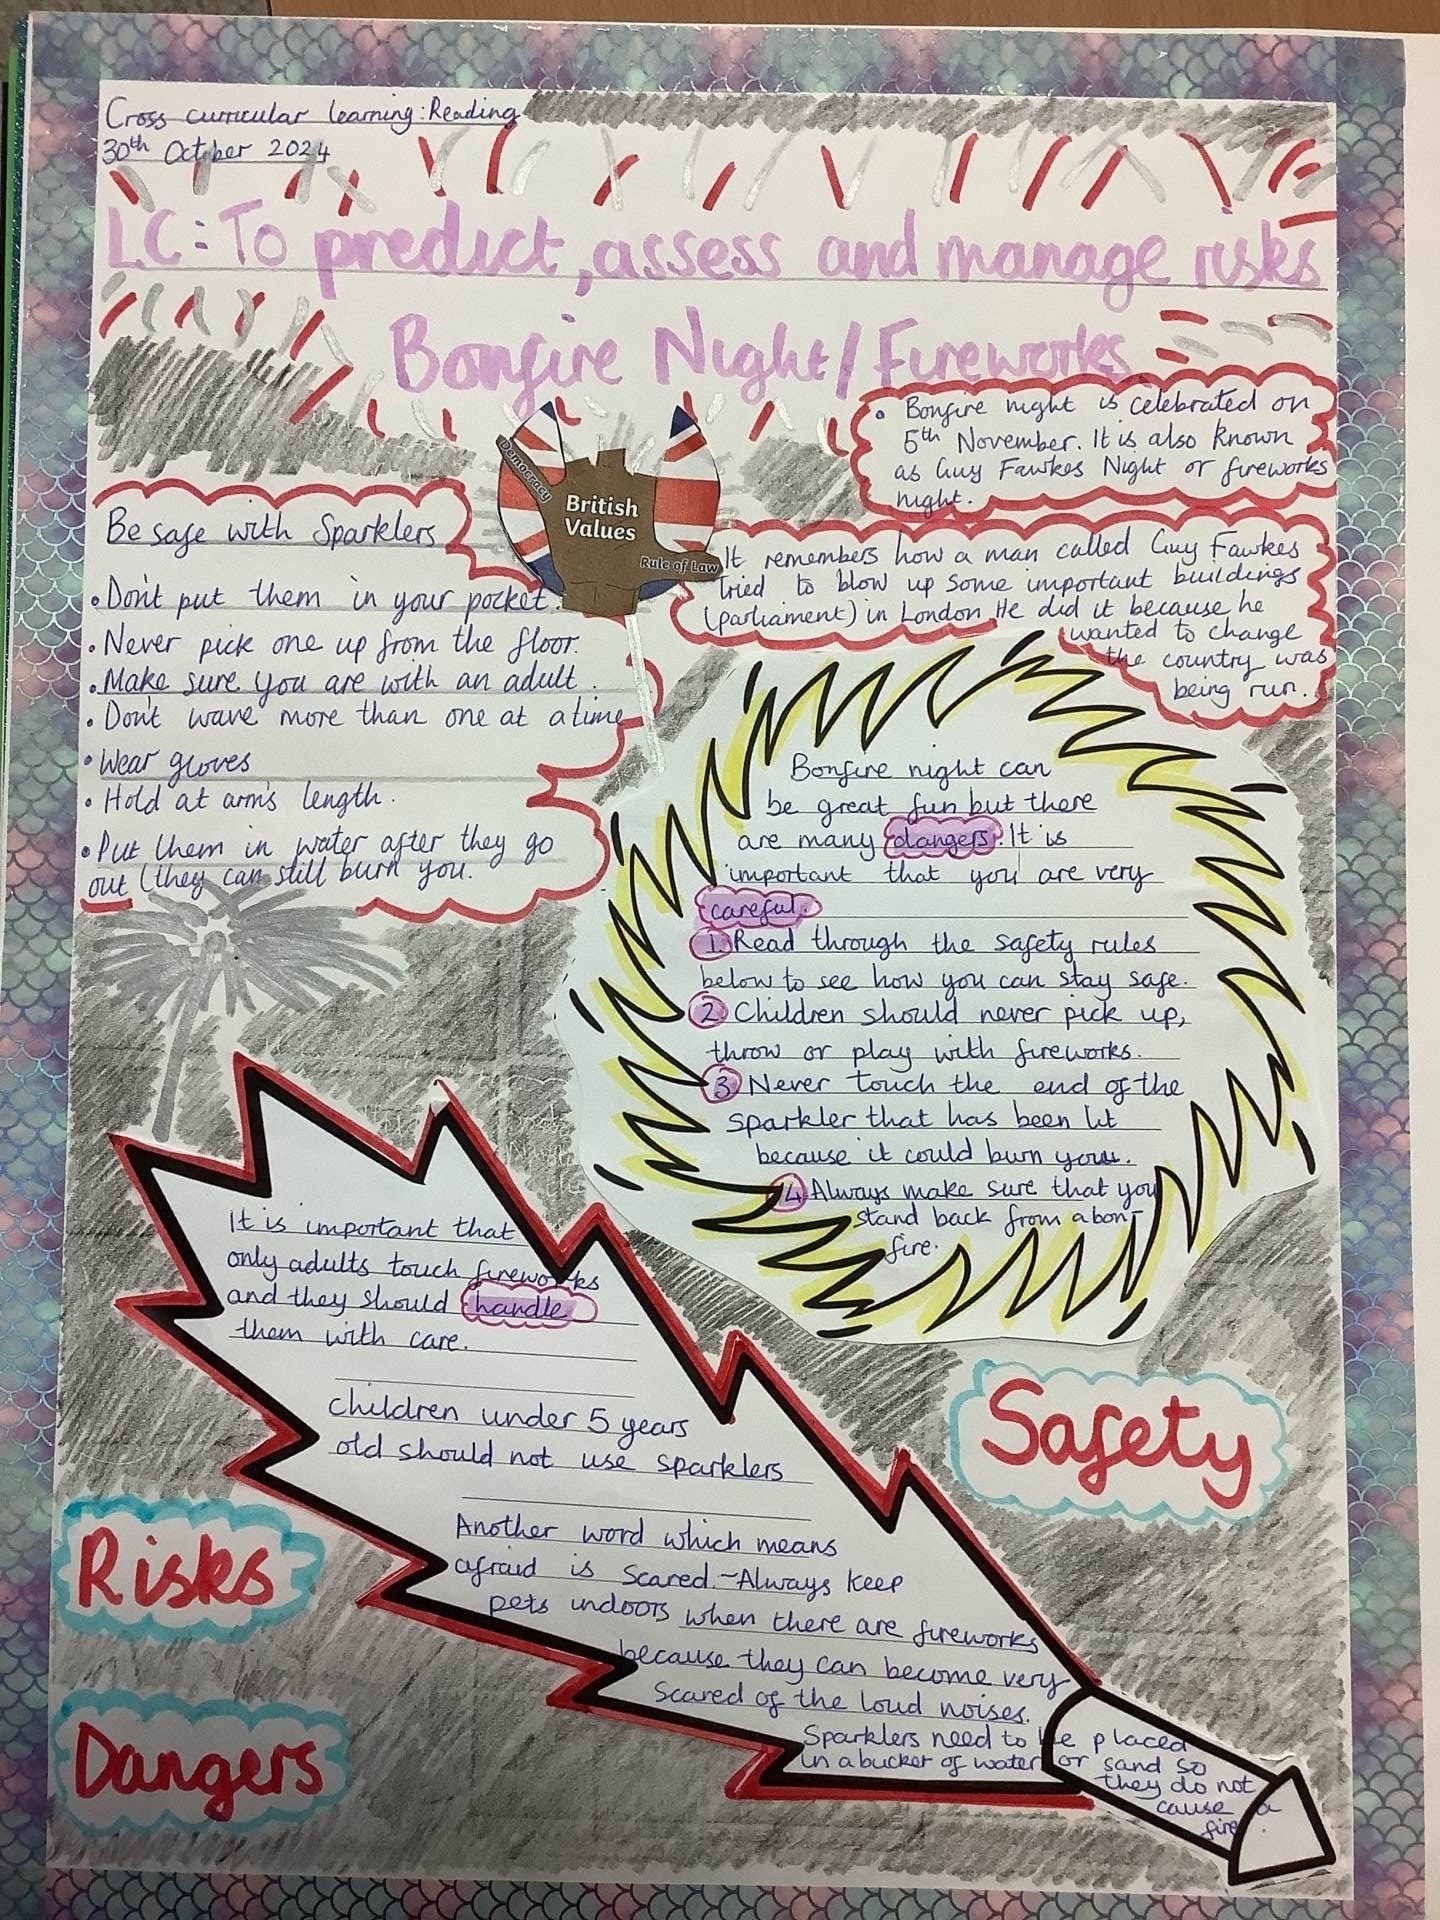 Cross curricular learning: Reading
30th October 2024
L.C: To predict, assess and manage risks
Bonfire Night/Fireworks
• Bonfire night is celebrated on
5th November. It is also known
as Guy Fawkes Night or fireworks
night.
Democracy
British
Values
Rule of Law
It remembers how a man called Guy Fawkes
tried to blow up some important buildings
(parliament) in London. He did it because he
wanted to change
the country was
being run.
Be safe with Sparklers
• Don't put them in your pocket.
• Never pick one up from the floor.
• Make sure you are with an adult.
• Don't wave more than one at a time
• Wear gloves
• Hold at arm's length.
• Put them in water after they go
out (they can still burn you.
Bonfire night can
be great fun but there
are many dangers. It is
important that you are very
careful.
1. Read through the safety rules
below to see how you can stay safe.
2. Children should never pick up,
throw or play with fireworks.
3. Never touch the end of the
sparkler that has been lit
because it could burn you.
4. Always make sure that you
stand back from a bon-
fire.
It is important that
only adults touch fireworks
and they should handle
them with care.
Children under 5 years
old should not use sparklers
Another word which means
afraid is scared. - Always keep
pets indoors when there are fireworks
because they can become very
scared of the loud noises.
Sparklers need to be placed
in a bucket of water or sand so
they do not
cause a
fire.
Safety
Risks
Dangers